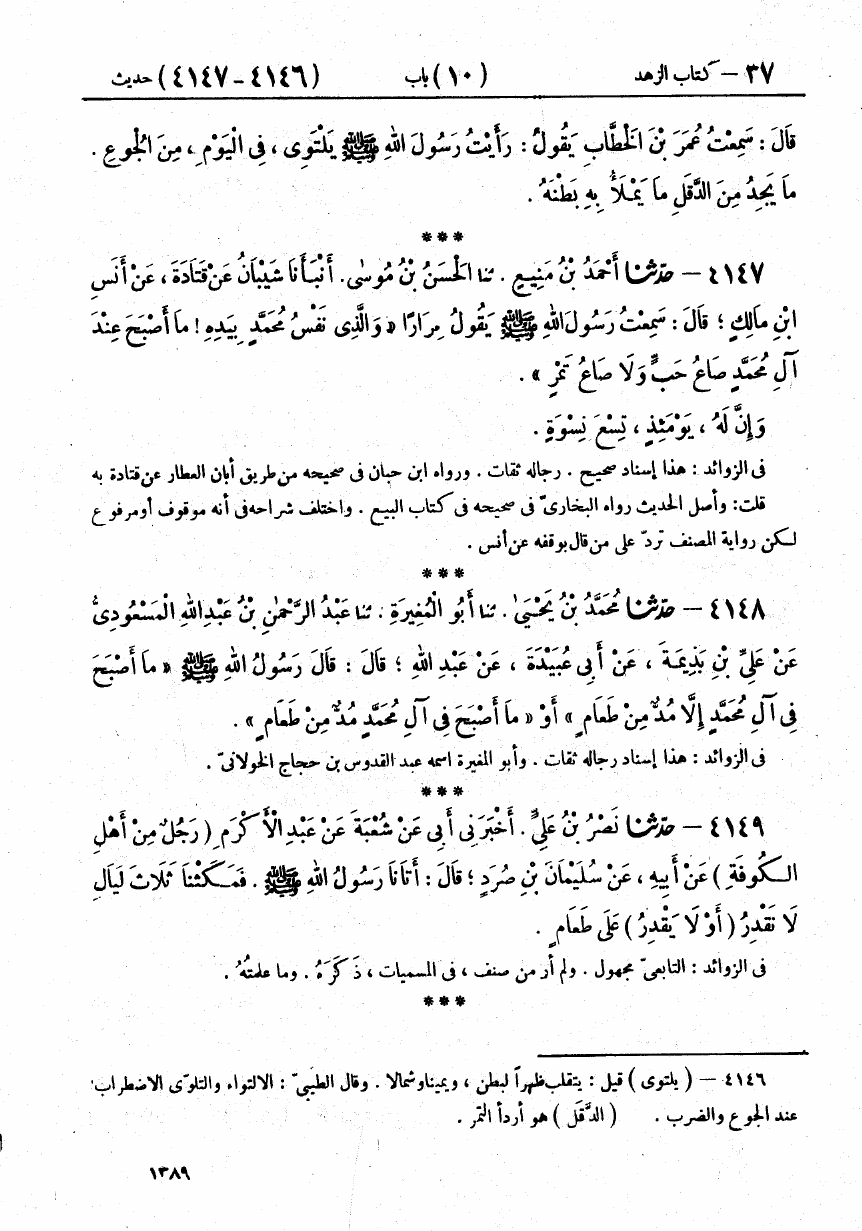 ٣٧ – كتاب الزهد (١٠) باب (٤١٤٦ – ٤١٤٧) حديث
قَالَ : سَمِعْتُ عُمَرَ بْنَ الْخَطَّابِ يَقُولُ : رَأَيْتُ رَسُولَ اللهِ ﷺ يَلْتَوِى ، فِى الْيَوْمِ ، مِنَ الْجُوعِ .
مَا يَجِدُ مِنَ الدَّقَلِ مَا يَمْلَأُ بِهِ بَطْنَهُ .
* * *
٤١٤٧ – حدّثنا أَحْمَدُ بْنُ مَنِيعٍ . ثنا الْحَسَنُ بْنُ مُوسٰى . أَنْبَأَنَا شَيْبَانُ عَنْ قَتَادَةَ ، عَنْ أَنَسِ
ابْنِ مَالِكٍ ؛ قَالَ : سَمِعْتُ رَسُولَ اللهِ ﷺ يَقُولُ مِرَارًا « وَالَّذِى نَفْسُ مُحَمَّدٍ بِيَدِهِ ! مَا أَصْبَحَ عِنْدَ
آلِ مُحَمَّدٍ صَاعُ حَبٍّ وَلَا صَاعُ تَمْرٍ » .
وَإِنَّ لَهُ ، يَوْمَئِذٍ ، تِسْعَ نِسْوَةٍ .
فى الزوائد : هذا إسناد صحيح . رجاله ثقات . ورواه ابن حبان فى صحيحه من طريق أبان العطار عن قتادة به
قلت : وأصل الحديث رواه البخارىّ فى صحيحه فى كتاب البيع . واختلف شراحه فى أنه موقوف أو مرفوع
لكن رواية المصنف تردّ على من قال بوقفه عن أنس .
* * *
٤١٤٨ – حدّثنا مُحَمَّدُ بْنُ يَحْيَىٰ . ثنا أَبُو الْمُغِيرَةِ . ثنا عَبْدُ الرَّحْمٰنِ بْنُ عَبْدِ اللهِ الْمَسْعُودِىُّ
عَنْ عَلِىِّ بْنِ بَذِيمَةَ ، عَنْ أَبِى عُبَيْدَةَ ، عَنْ عَبْدِ اللهِ ؛ قَالَ : قَالَ رَسُولُ اللهِ ﷺ « مَا أَصْبَحَ
فِى آلِ مُحَمَّدٍ إِلَّا مُدٌّ مِنْ طَعَامٍ » أَوْ « مَا أَصْبَحَ فِى آلِ مُحَمَّدٍ مُدٌّ مِنْ طَعَامٍ » .
فى الزوائد : هذا إسناد رجاله ثقات . وأبو المغيرة اسمه عبد القدوس بن حجاج الخولانىّ .
* * *
٤١٤٩ – حدّثنا نَصْرُ بْنُ عَلِىٍّ . أَخْبَرَنِى أَبِى عَنْ شُعْبَةَ عَنْ عَبْدِ الْأَكْرَمِ ( رَجُلٌ مِنْ أَهْلِ
الْكُوفَةِ ) عَنْ أَبِيهِ ، عَنْ سُلَيْمَانَ بْنِ صُرَدٍ ؛ قَالَ : أَتَانَا رَسُولُ اللهِ ﷺ . فَمَكَثْنَا ثَلَاثَ لَيَالٍ
لَا نَقْدِرُ ( أَوْ لَا يَقْدِرُ ) عَلَى طَعَامٍ .
فى الزوائد : التابعىّ مجهول . ولم أر من صنف ، فى المسميات ، ذَكَرَهُ . وما علمتُهُ .
* * *
٤١٤٦ – ( يلتوى ) قيل : يتقلب ظهراً لبطن ، ويمينا وشمالا . وقال الطيبىّ : الالتواء والتلوّى الاضطراب
عند الجوع والضرب . ( الدَّقَل ) هو أردأ التمر .
١٣٨٩